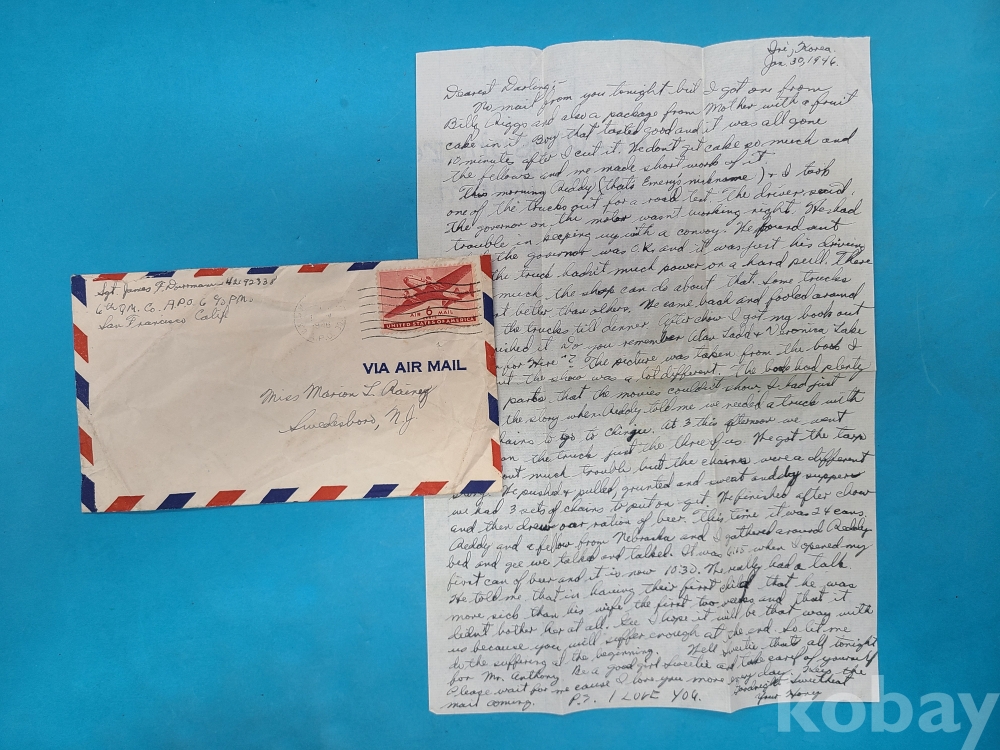 Sgt. James F. Durman 42192338
6th Q.M. Co. A.P.O. 6 % P.M.
San Francisco Calif
AIR 6 MAIL
UNITED STATES OF AMERICA
VIA AIR MAIL
Miss Marion L. Rainey
Swedesboro, N.J.
Iri, Korea
Jan. 30, 1946.
Dearest Darling;-
No mail from you tonight but I got one from
Billy Riggs and also a package from Mother with a fruit
cake in it. Boy that tasted good and it was all gone
10 minute after I cut it. We don't get cake so much and
the fellows and me made short work of it.
This morning Reddy (that's Emery's nickname) & I took
one of the trucks out for a road test. The driver said
the governor on the motor wasn't working right. He had
trouble in keeping up with a convoy. We found out
the governor was O.K. and it was just his driving
the truck hadn't much power on a hard pull. There
much the shop can do about that. Some trucks
better than others. We came back and fooled around
the trucks till dinner. After chow I got my books out
it. Do you remember Alan Ladd & Veronica Lake
"? The picture was taken from the book I
the show was a lot different. The book had plenty
parts that the movies couldn't show. I had just
the story when Reddy told me we needed a truck with
to go to Chinju. At 3 this afternoon we went
on the truck just the three of us. We got the
out much trouble but the chains were a different
We pushed & pulled, grunted and sweat and by suppers
we had 3 sets of chains to put on yet. We finished after chow
and then drew our ration of beer. This time it was 24 cans.
Reddy and a fellow from Nebraska and I gathered around Reddy
bed and gee we talked and talked. It was 6:15 when I opened my
first can of beer and it is now 10:30. We really had a talk.
He told me that in having their first child that he was
more sick than his wife the first two weeks and that it
didn't bother her at all. Gee I hope it will be that way with
us because you will suffer enough at the end. So let me
do the suffering at the beginning. Well Sweetie that's all tonight
for Mr. Anthony. Be a good girl Sweetie and take care of yourself
Please wait for me cause I love you more every day. Keep the
mail coming. P.S. I LOVE YOU.
Goodnight Sweetheart
Your Honey
kobay